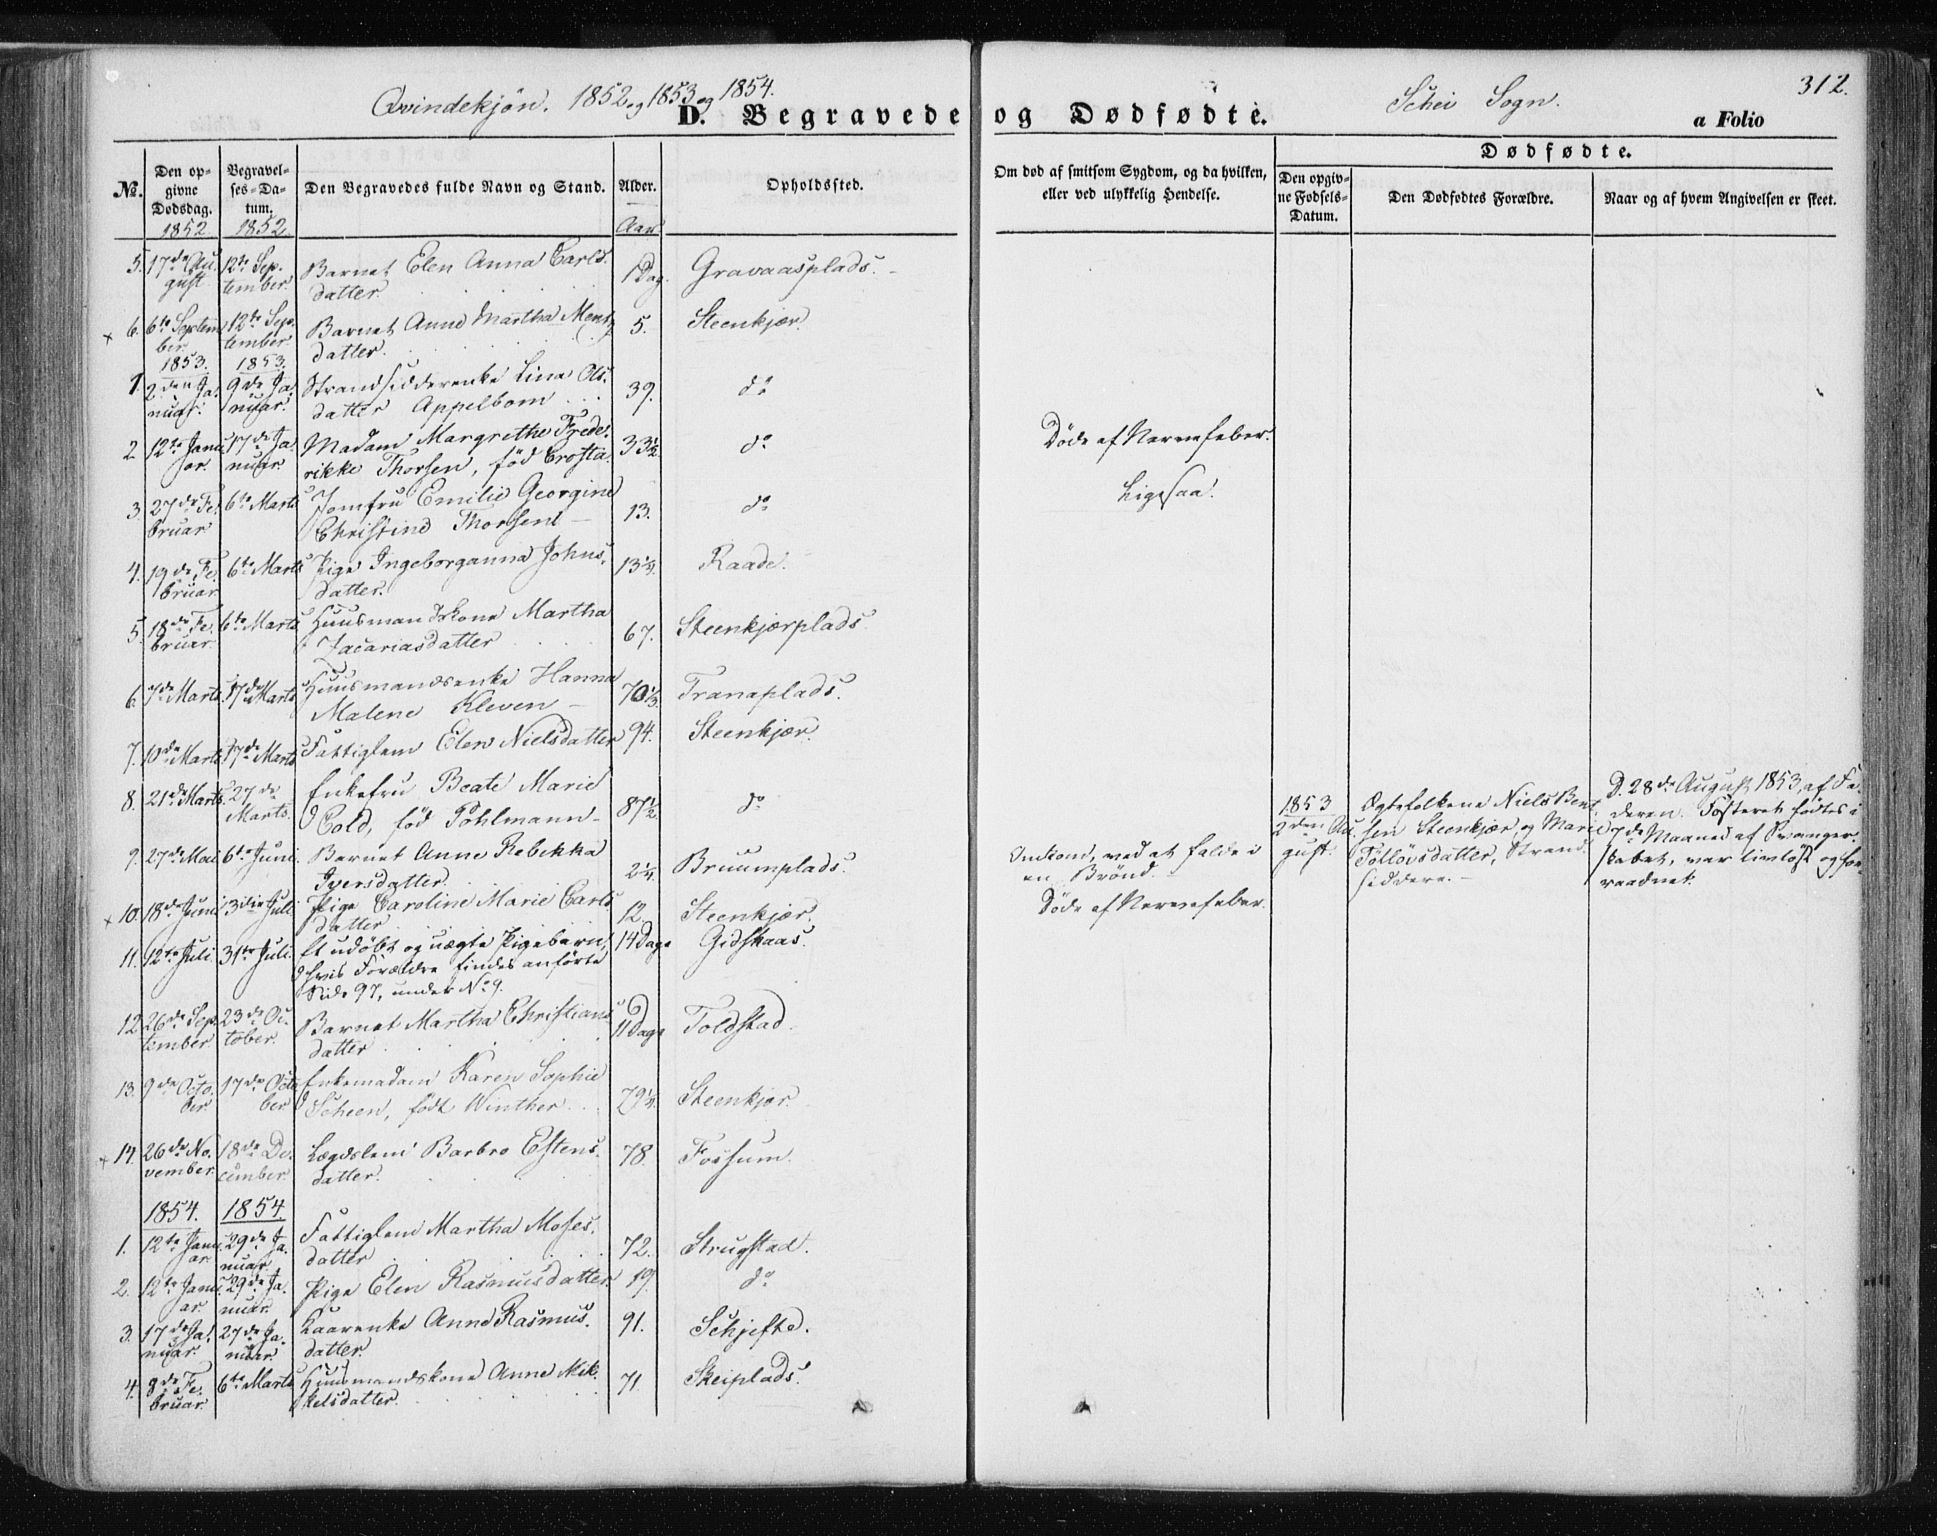 Qvindekjön. 1852 og 1853 og 1854.
Schei Sogn.
312.
D. Begravede og Dødfødte.
a Folio
No.
Den opgivne Dødsdag.
Begravelses-Datum.
Den Begravedes fulde Navn og Stand.
Alder.
Opholdssted.
Om død af smitsom Sygdom, og da hvilken, eller ved ulykkelig Hendelse.
Dødfødte.
Den opgivne Fødsels-Datum.
Den Dødfødtes Forældre.
Naar og af hvem Angivelsen er skeet.
1852 1852 Aar
5. 17de August 12te September Barnet Elen Anna Carlsdatter 1 Dag. Gravaasplads.
× 6. 6te September 12te September Barnet Anne Martha Mentzdatter 5. Steenkjær.
1853. 1853.
1. 2den Januar. 9de Januar. Strandsidderenke Lina Olsdatter Appelbom 39. do
2 12te Januar. 17de Januar Madam Margrethe Frederikke Thorsen, född Crofta. 33½ do Døde af Nervefeber.
3. 27de Februar 6te Marts Jomfru Emilie Georgine Christine Thorsen 13. do Ligesaa.
4. 19de Februar 6te Marts Pige Ingeborganna Johnsdatter. 13¼. Raade.
5. 18de Februar. 6te Marts Huusmandskone Martha Zacariasdatter 67. Steenkjærplads
6. 7de Marts. 17de Marts Huusmandsenke Hanna Malene Kleven 70⅓. Tranaplads.
7. 10de Marts 17de Marts Fattiglem Elen Nielsdatter 94. Steenkjær.
8. 21de Marts. 27de Marts. Enkefru Beate Marie Cold, fød Pöhlmann 87½. do
9. 27de Mai 6te Juni. Barnet Anne Rebekka Iversdatter. 2¼. Bruumplads. Omkom, ved at falde i en Brönd.
1853 2den August. Ægtefolkene Niels Bentsen Steenkjær, og Marie Tollövsdatter, Strandsiddere. D. 28de August 1853, af Faderen. Fosteret födtes i 7de Maaned af Svangerskabet, var livlöst og forraadnet.
× 10. 18de Juni 3die Juli Pige Caroline Marie Carlsdatter 12. Steenkjær. Døde af Nervefeber.
11. 12te Juli. 31te Juli. Et udöbt og uægte Pigebarn, hvis Forældre findes anförte Side 97, under No 9. 14 Dage Gidskaas.
12. 26de September. 23de October. Barnet Martha Christiansdatter 11 Dage Toldstad.
13. 9de October. 17de October Enkemadam Karen Sophie Scheen, födt Winther 79¼. Steenkjær.
× 14. 26de November. 18de December. Lægdslem Barbro Estensdatter. 78. Fossum.
1854. 1854.
1. 12te Januar 29de Januar. Fattiglem Martha Mosesdatter 72. Strugstad.
2. 12te Januar. 29de Januar. Pige Elen Rasmusdatter. 19. do
3. 17de Januar. 27de Januar. Kaarenke Anne Rasmusdatter. 91. Schjefte.
4. 8de Februar. 6te Marts Huusmandskone Anne Mikkelsdatter. 71 Skeiplads.